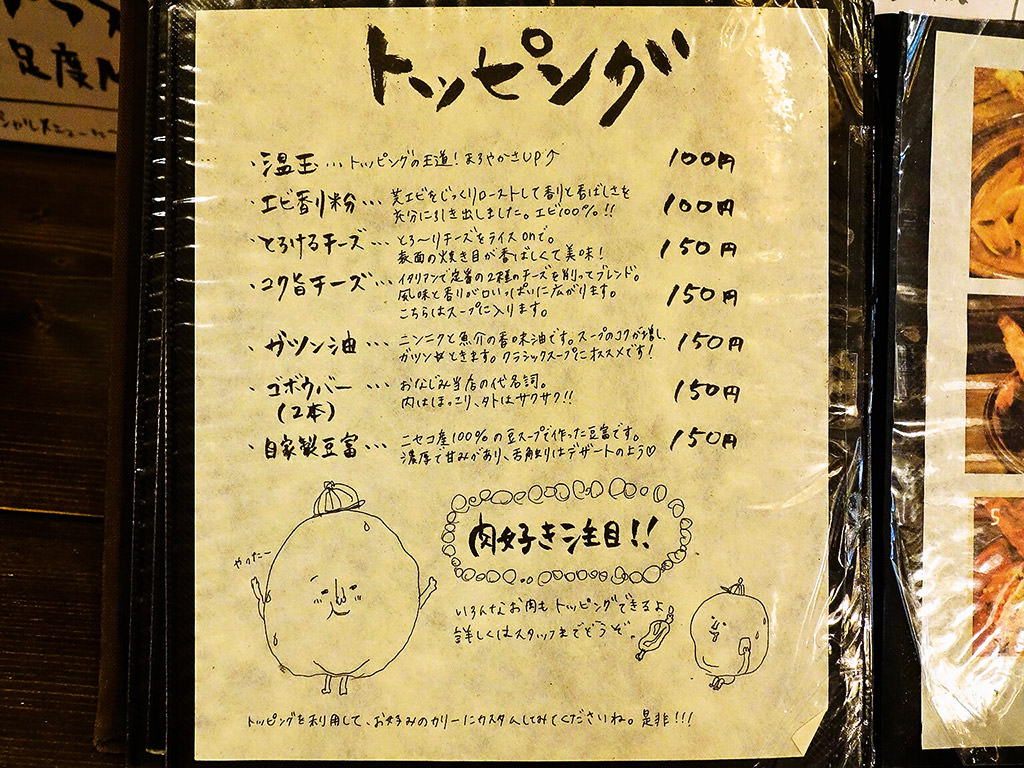 足度
トッピング
・温玉… トッピングの王道!まろやかさUP↑ 100円
・エビ香り粉… 芝エビをじっくりローストして香りと香ばしさを
充分に引き出しました。エビ100%!! 100円
・とろけるチーズ… とろ〜りチーズをライスonで。
表面の焼き目が香ばしくて美味! 150円
・コク旨チーズ… イタリアンで定番の2種のチーズを削ってブレンド。
風味と香りが口いっぱいに広がります。
こちらはスープに入ります。 150円
・ガツン油… ニンニクと魚介の香味油です。スープのコクが増し、
ガツン★ときます。クラシックスープにオススメです! 150円
・ゴボウバー… おなじみ当店の代名詞。
(2本) 内はほっこり、外はサクサク!! 150円
・自家製豆富… ニセコ産100%の豆スープで作った豆富です。
濃厚で甘みがあり、舌触りはデザートのよう♡ 150円
肉好き注目!!
やったー
いろんなお肉もトッピングできるよ
詳しくはスタッフまでどうぞ。
トッピングを利用して、お好みのカリーにカスタムしてみてくださいね。是非!!!
5